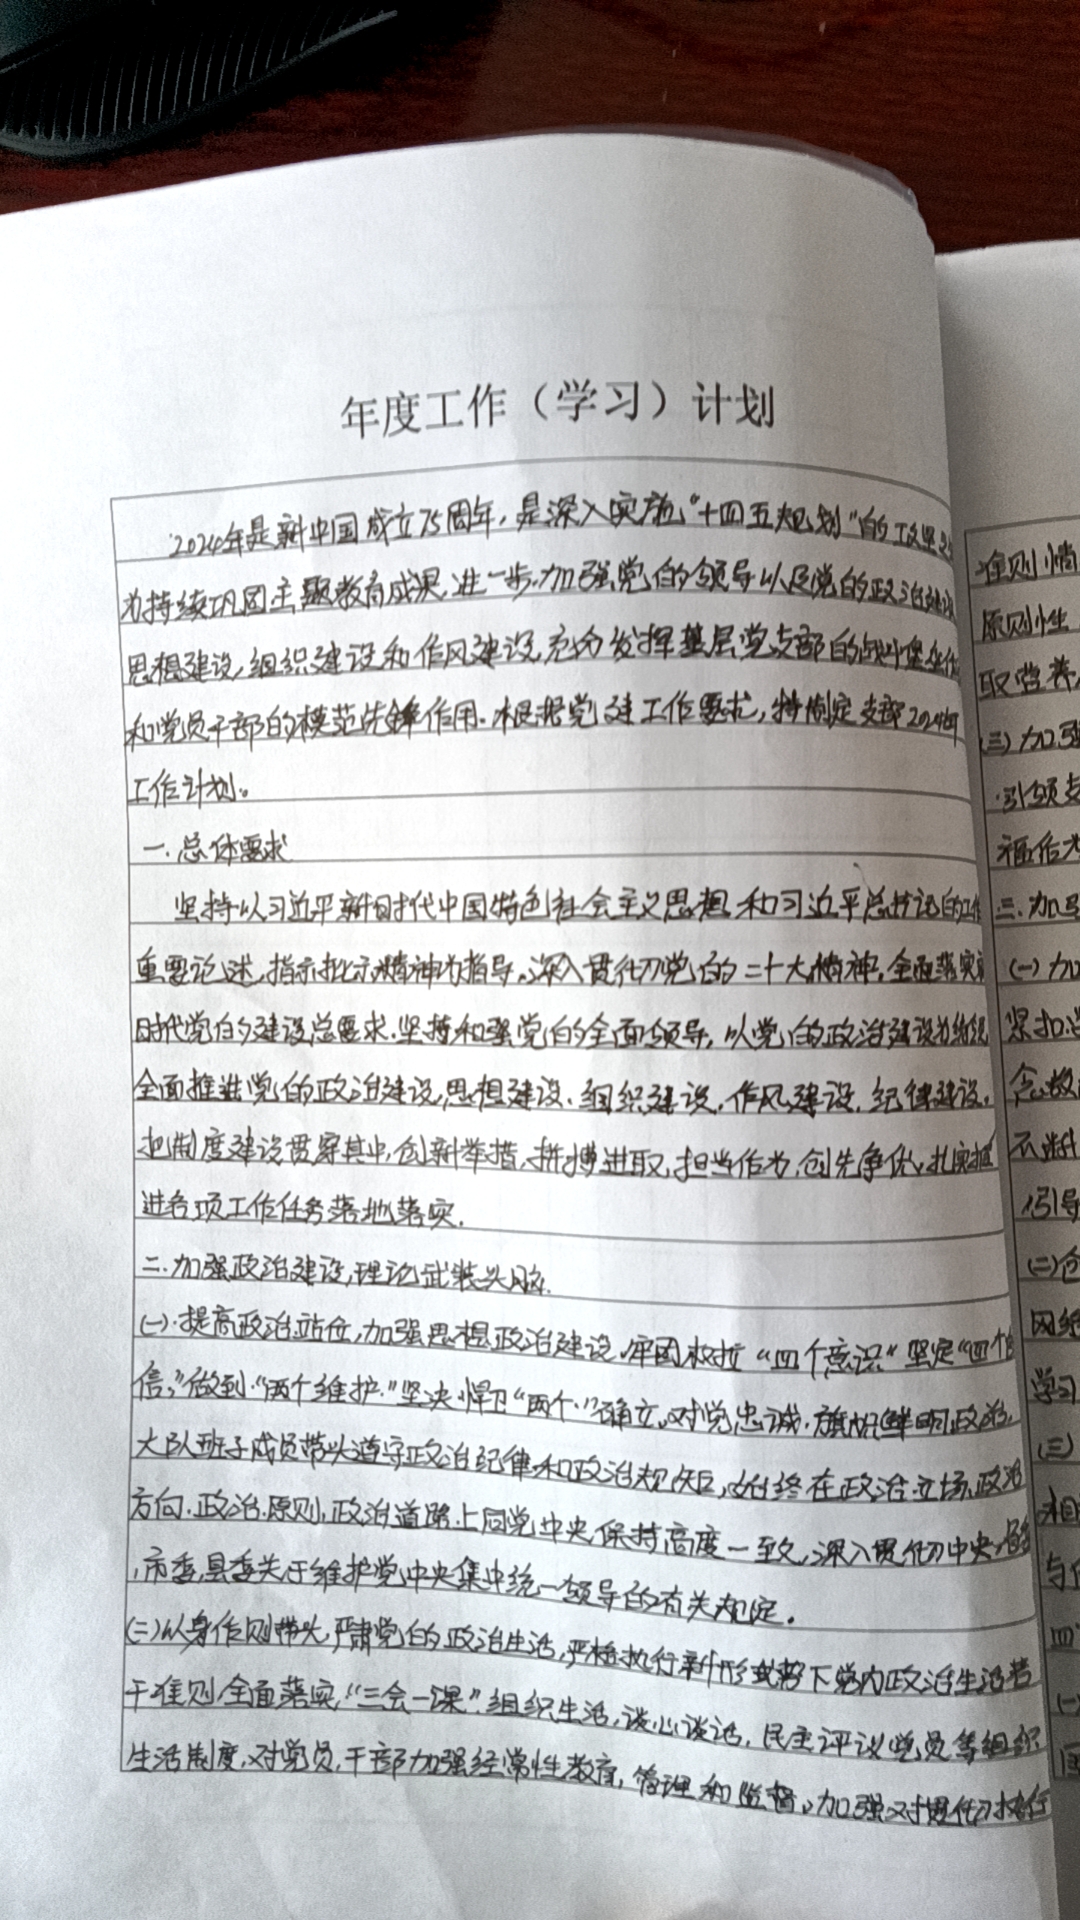 年度工作（学习）计划
2024年是新中国成立75周年，是深入实施“十四五规划”的攻坚之
为持续巩固主题教育成果，进一步加强党的领导以及党的政治建设
思想建设，组织建设和作风建设，充分发挥基层党支部的战斗堡垒作
和党员干部的模范先锋作用．根据党建工作要求，特制定支部2024年
工作计划。
一．总体要求
坚持以习近平新时代中国特色社会主义思想和习近平总书记的工作
重要论述，指示批示精神为指导。深入贯彻党的二十大精神，全面落实
时代党的建设总要求．坚持和强党的全面领导，以党的政治建设为统领
全面推进党的政治建设，思想建设．组织建设．作风建设．纪律建设．
把制度建设贯穿其中，创新举措，拼搏进取，担当作为，创先争优，扎实推
进各项工作任务落地落实．
二．加强政治建设，理论武装头脑．
(一)．提高政治站位，加强思想政治建设，牢固树立“四个意识”坚定“四个自
信，”做到“两个维护”坚决捍卫“两个”确立。对党忠诚．旗帜鲜明政治．
大队班子成员带头遵守政治纪律和政治规矩，始终在政治立场，政治
方向．政治原则，政治道路上同党中央保持高度一致，深入贯彻中央，
，市委，县委关于维护党中央集中统一领导的有关规定．
(二)以身作则带头，严肃党的政治生活，严格执行新形势下党内政治生活若
干准则，全面落实，“三会一课”组织生活，谈心谈话，民主评议党员等组织
生活制度，对党员，干部加强经常性教育，管理和监督，加强对贯彻执行
准则情
原则性
取营养
(三)加强
引领支
福作为
三．加强
(一)加
紧扣
念教
不断
引导
(二)
网络
学习
(三)
相
与
四
(一)